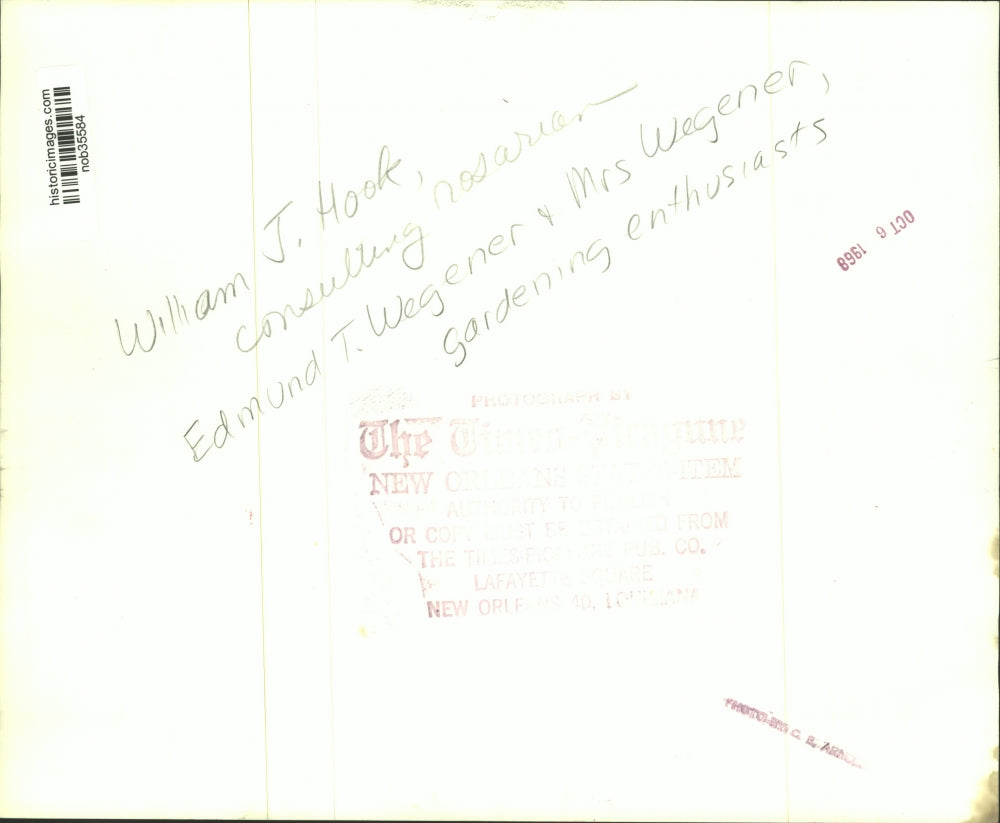 historicimages.com
nob35584
William J. Hook,
consulting rosarian
Edmund T. Wegener & Mrs Wegener,
gardening enthusiasts
OCT 6 1968
PHOTOGRAPH BY
The Times-Picayune
NEW ORLEANS STATES-ITEM
AUTHORITY TO PUBLISH
OR COPY MUST BE OBTAINED FROM
THE TIMES-PICAYUNE PUB. CO.
LAFAYETTE SQUARE
NEW ORLEANS 40, LOUISIANA
C. E.